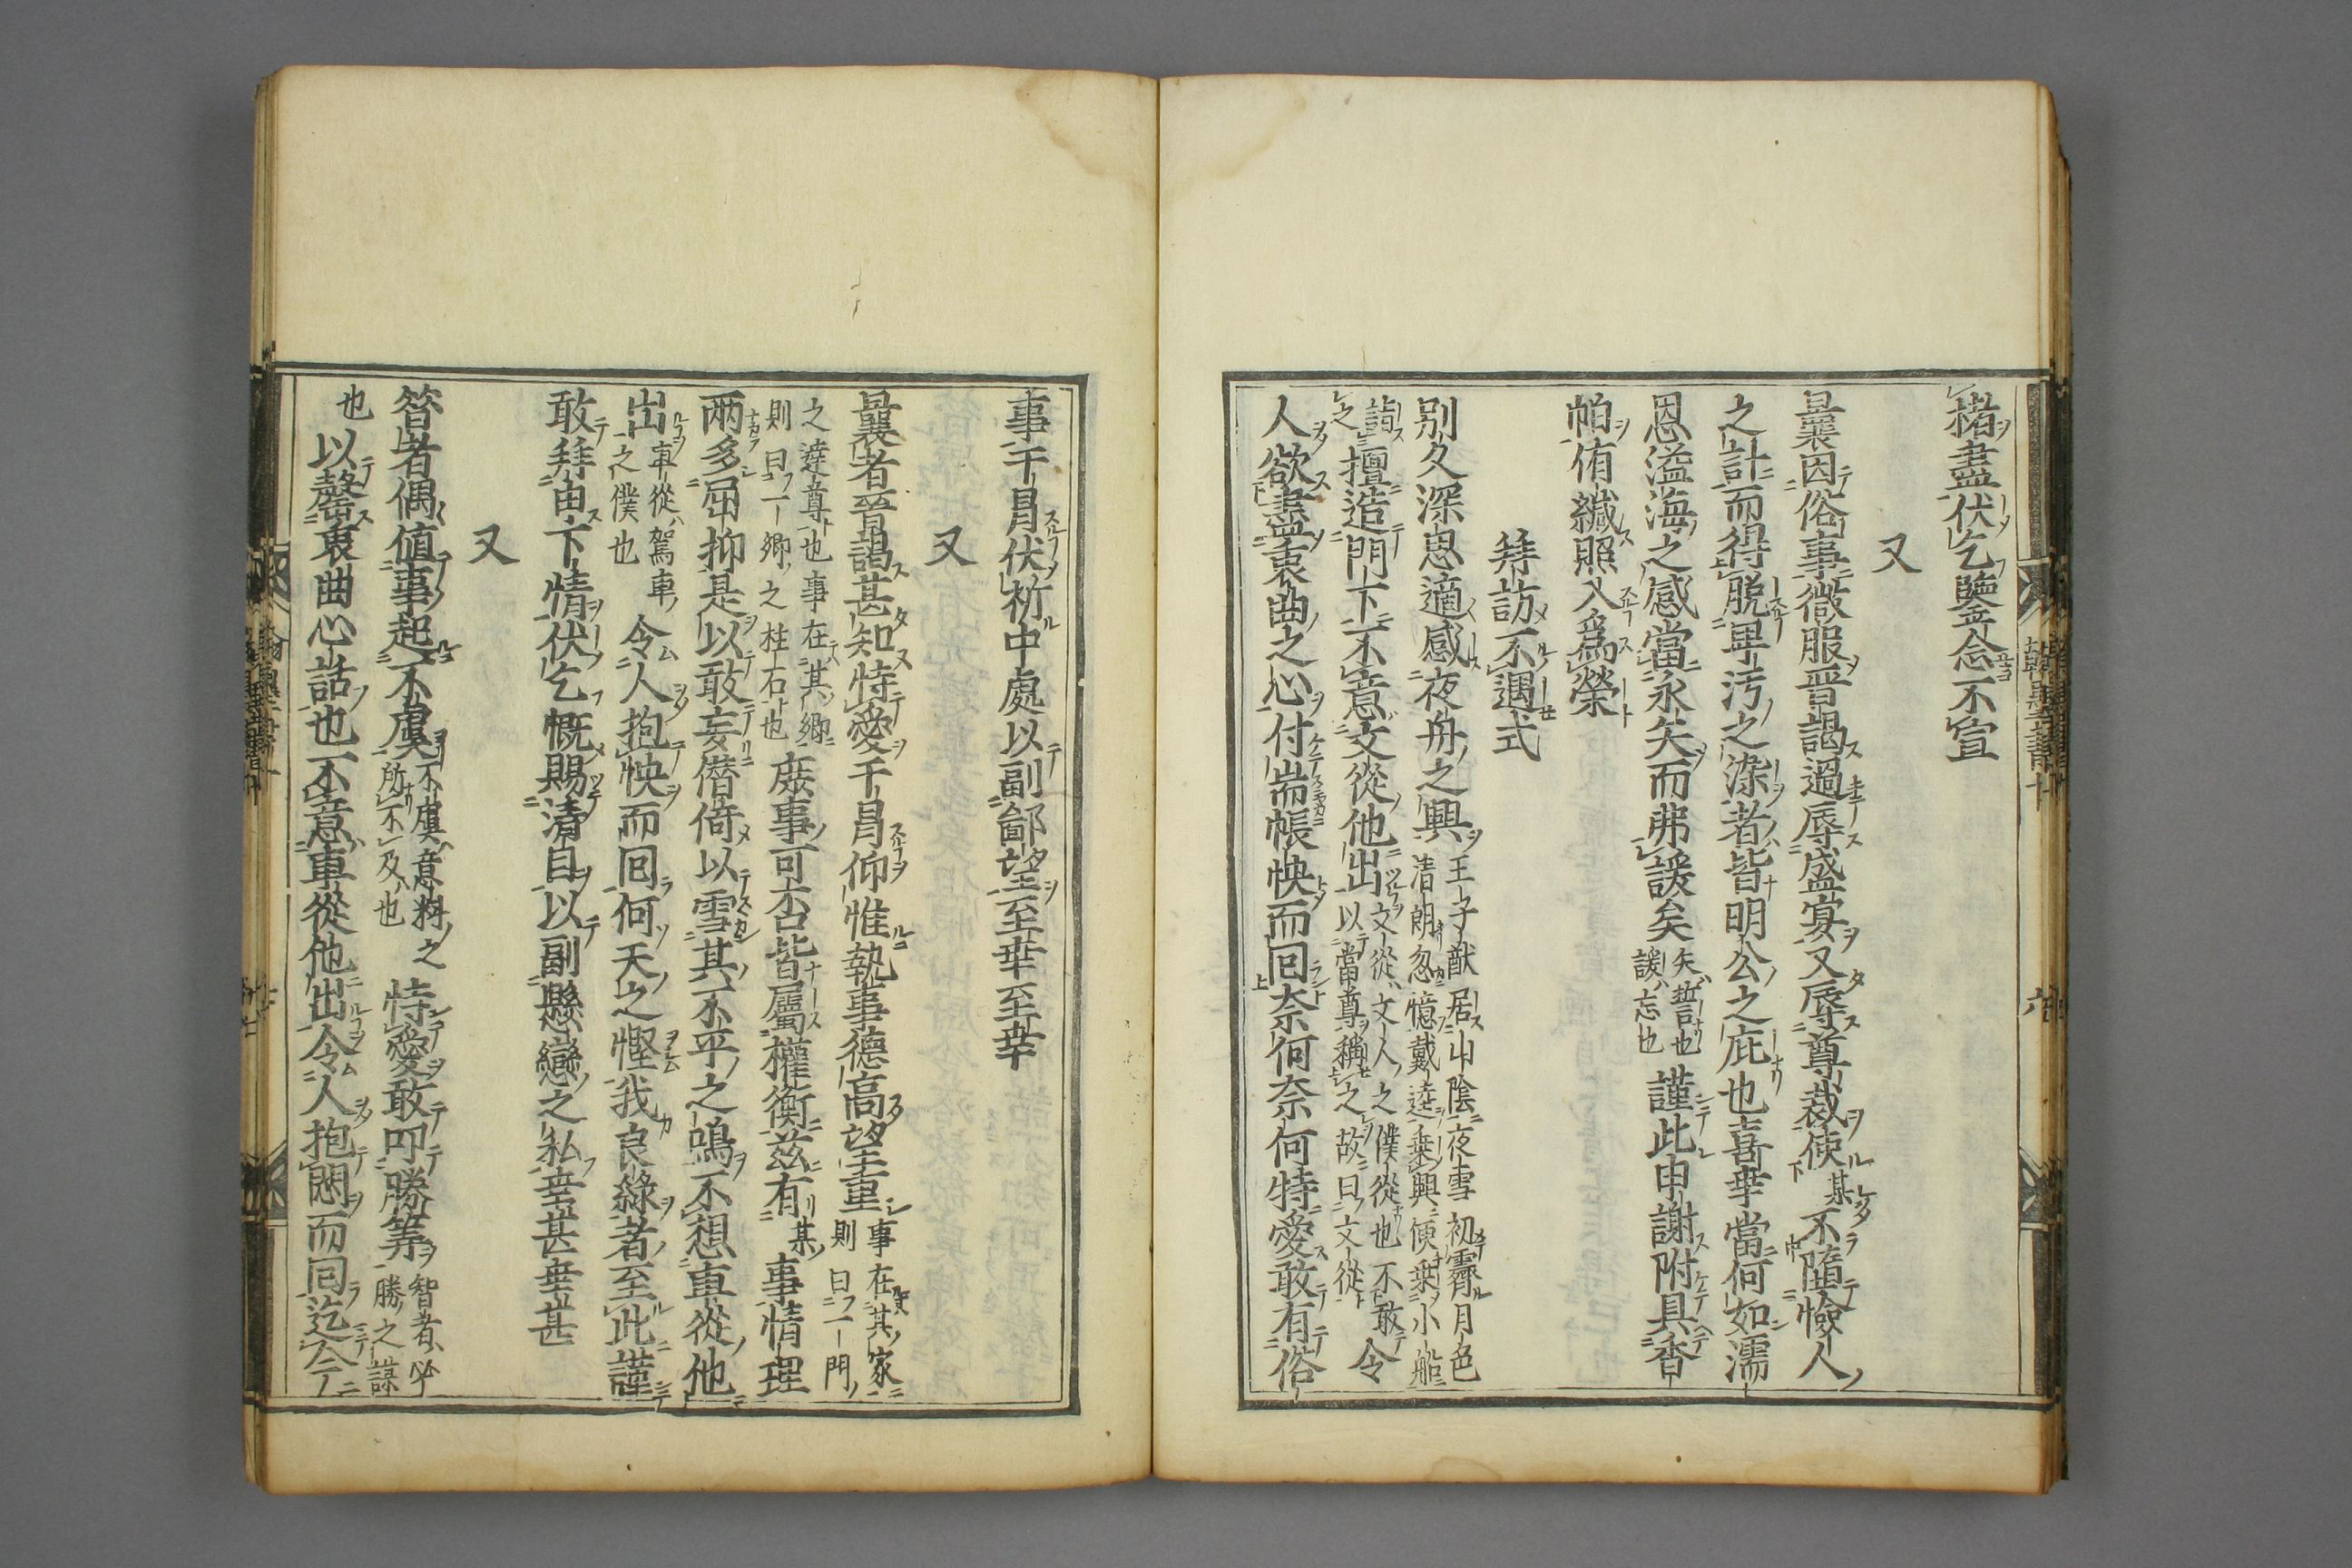 楮盡伏乞鹽念不宣
又
曩因俗事微服晋謁過辱盛宴又辱尊裁使某不墮憸人
之計而得脱卑汚之染者皆明公之庇也喜幸當何如濡
恩溢海之感當永矢而弗諼矣
矢誓言也
諼忘也
謹此申謝附具香
帕侑緘照入爲榮
拜訪不遇式
別久深思適感夜舟之興
王子猷居山陰夜雪初霽月色
清朗忽憶戴逵乗興便乗小船
詣
之
擅造門下不意文從他出
文從文人之僕從也不敢
以當尊稱之故曰文從
令
人欲盡衷曲之心付耑帳怏而回奈何奈何特愛敢有俗
事干冒伏祈中處以副鄙望至幸至幸
又
曩者晋謁甚知恃愛干冒仰惟執事德高望重
事在其家
則曰一門
之達尊也事在其鄉
則曰一鄉之柱石也
庶事可否皆屬權衡茲有某事情理
两多屈抑是以敢妄僣倚以雪其不平之鳴不想車從他
出
車從駕車
之僕也
令人抱怏而回何天之慳我良緣者至此謹
敢拜由下情伏乞慨賜清目以副懸戀之私幸甚幸甚
又
答者偶値事起不虞
不虞意料之
所不及也
恃愛敢叩勝筭
智者
勝之謀
也
以罄衷曲心話也不意車從他出令人抱悶而回迄今